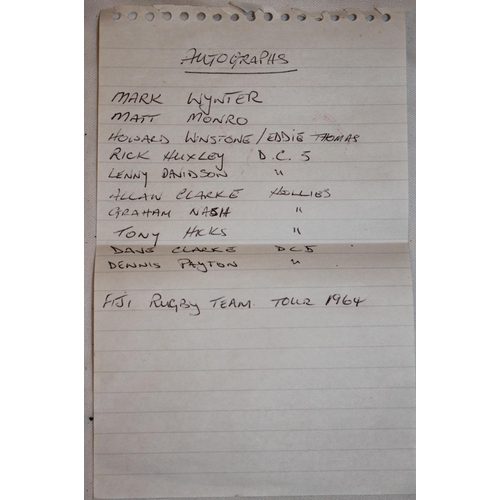 AUTOGRAPHS
MARK WYNTER
MATT MONRO
HOWARD WINSTONE / EDDIE THOMAS
RICK HUXLEY D.C. 5
LENNY DAVIDSON "
ALLAN CLARKE HOLLIES
GRAHAM NASH "
TONY HICKS "
DAVE CLARKE DC5
DENNIS PAYTON "
FIJI RUGBY TEAM TOUR 1964